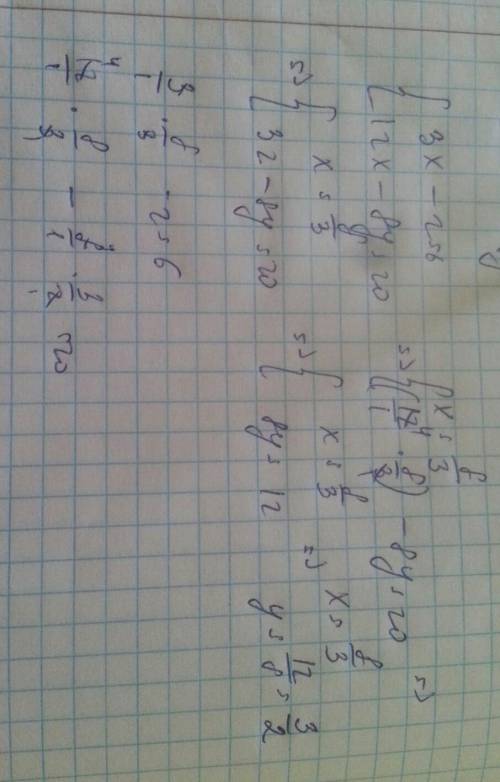 { 3x - 2 = 6
{ 12x - 8y = 20
=> { x = 8/3
{ (12/1 · 8/3) - 8y = 20 =>
=> { x = 8/3
{ 32 - 8y = 20
=> { x = 8/3
{ 8y = 12
=> x = 8/3
y = 12/8 = 3/2
3/1 · 8/3 - 2 = 6
12/1 · 8/3 - 8/1 · 3/2 20